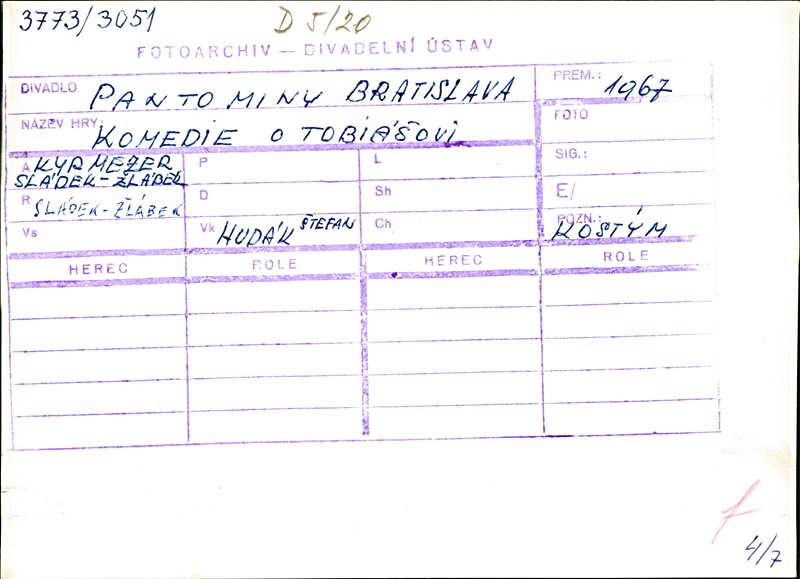 3773/3051 D 5/20
FOTOARCHIV — DIVADELNÍ ÚSTAV
DIVADLO PANTOMINY BRATISLAVA PREM.: 1967
NÁZEV HRY: KOMEDIE O TOBIÁŠOVI FOTO
A KYRMEZER P L SIG.:
SLÁDEK-ŽLÁBEK
R SLÁDEK-ŽLÁBEK D Sh E/
Vs Vk HUDÁK ŠTEFAN Ch POZN.: KOSTÝM
HEREC ROLE HEREC ROLE
4/7